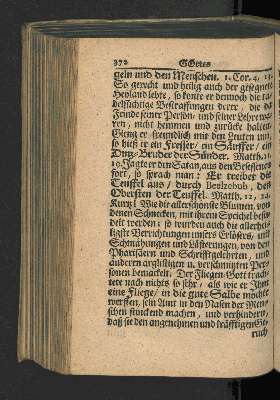 372 GOttes
geln und den Menschen. 1. Cor. 4, 13.
So gerecht und heilig auch der gesegnete
Heyland lehrte, so konte er dennoch die
Bestraffungen derer, die da
Feinde seiner Person, und seiner Lehre wa-
ren, nicht hemmen und zurücke halten.
Gieng er freundlich mit den Leuten um,
so hieß er ein Fresser, ein Säuffer, ein
Dutz-Bruder der Sünder. Matth. 11.
19. Jagte er den Satan, aus den Besessenen
fort, so sprach man: Er treibet die
Teuffel aus, durch Beelzebub, den
Obersten der Teuffel. Matth. 12, 24.
Kurz! Wie die allerschönste Blumen, von
denen Schnecken, mit ihrem Speichel besu-
delt werden: so wurden auch die allerhei-
ligste Verrichtungen unsers Erlösers, mit
Schmähungen und Lästerungen, von den
Pharisäern und Schrifftgelehrten, und
anderen arglistigen u. verschmitzten Per-
sonen bemackelt. Der Fliegen-Gott trach-
tete nach nichts so sehr, als wie er Ihm
eine Fliege, in die gute Salbe möchte
werffen, sein Amt in den Nasen der Men-
schen stinckend machen, und verhindern,
daß sie den angenehmen und kräfftigen Ge-
ruch